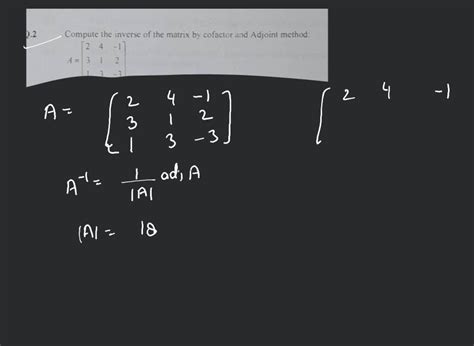 Q.2 Compute the inverse of the matrix by cofactor and Adjoint method:
2 4 -1
A = 3 1 2
1 3 -3
A = 2 4 -1
3 1 2
1 3 -3
2 4 -1
A⁻¹ = 1/|A| adj A
|A| = 18